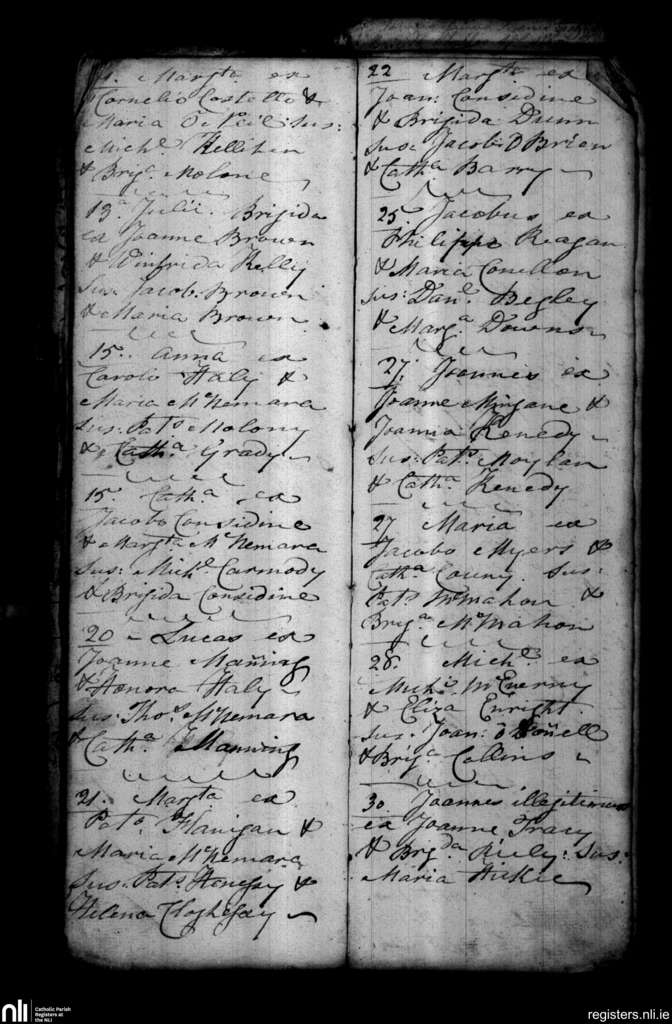 Margta. ex
Cornelio Costello &
Maria O'Neil: Sus:
Michl. Hellihen
& Brigd. Molone
13a. Julii. Brigida
ex Joanne Brown
& Winfrida Kelly
Sus: Jacob: Brown
& Maria Brown
15. Anna ex
Carolo Haly &
Maria McNemara
Sus: Pats. Molony
& Catha. Grady
15. Catha. ex
Jacobo Considine
& Margta. McNemara
Sus: Michl. Carmody
& Brigida Considine
20 Lucas ex
Joanne Manning
& Honora Haly
Sus: Thos. McNemara
& Catha. Manning
21. Margta. ex
Pato. Flanigan &
Maria McNemara
Sus: Pats. &
Helena
22 Margta. ex
Joan: Considine
& Brigida Dunn
Sus: Jacob: O Brien
& Catha. Barry
25. Jacobus ex
Philippo Reagan
& Maria Conellon
Sus: Danl. Begley
& Marga. Downs
27. Joannes ex
Joanne Mingane &
Joanna Kenedy
Sus: Pats. Moylan
& Catha. Kenedy
27 Maria ex
Jacobo Myers &
Catha. Couny. Sus:
Pats. McMahon &
Briga. McMahon
28. Michl. ex
Michl. McEnerny
& Eliza Enright
Sus. Joan: O Donnell
& Briga. Collins
30. Joannes illegitimus
ex Joanne Tracy
& Brigda. Riely: Sus:
Maria Hickie
nli
Catholic Parish
Registers at
the NLI
registers.nli.ie